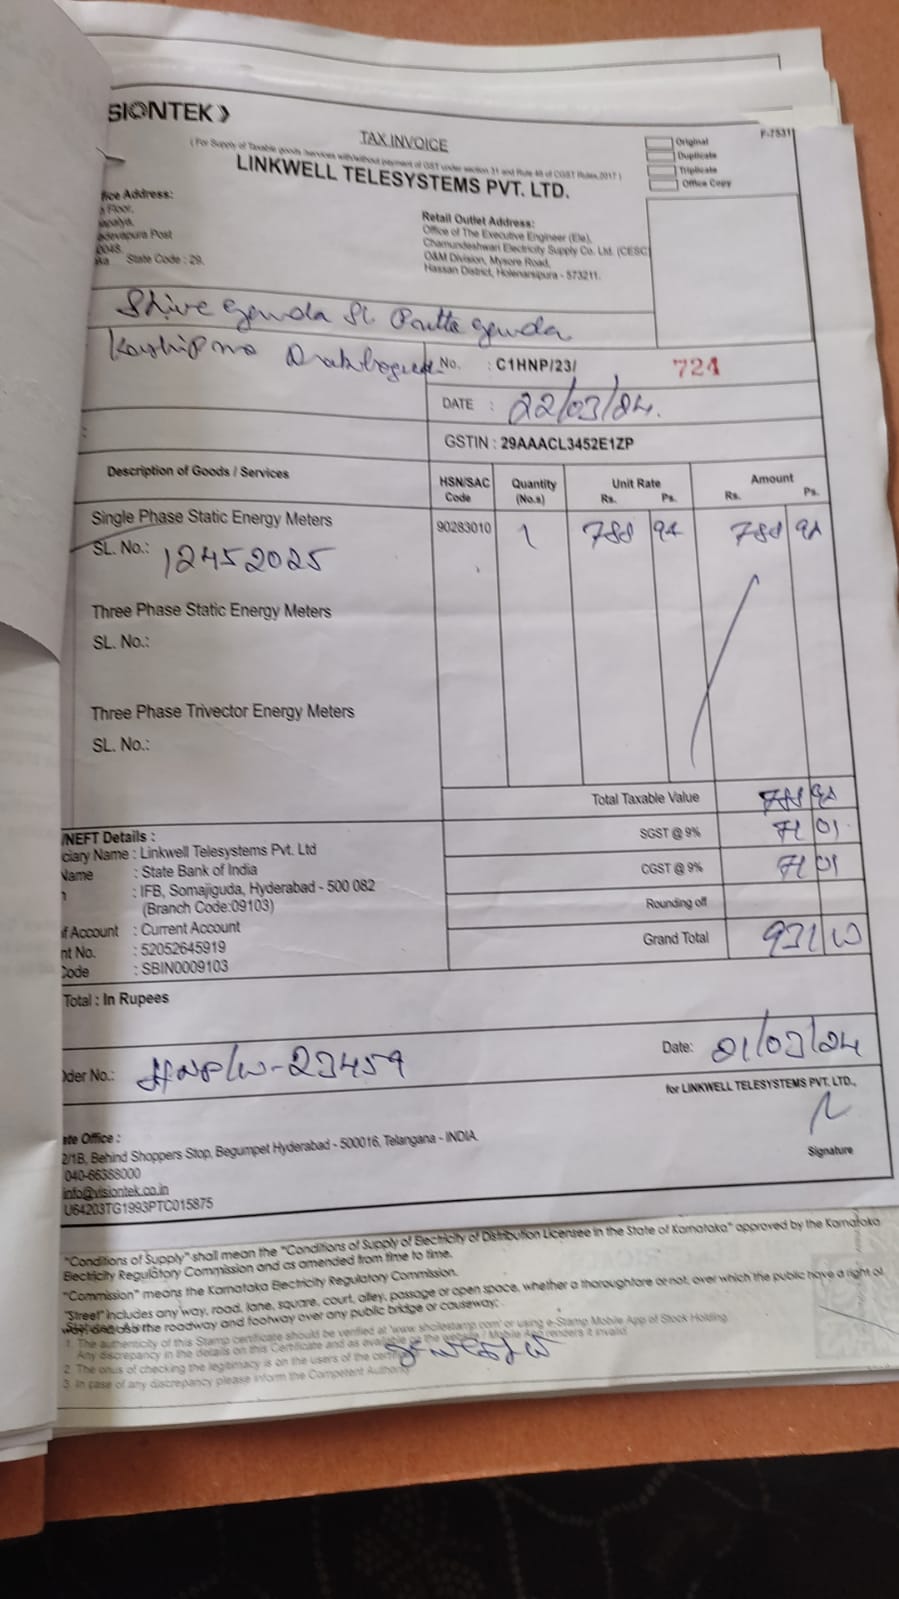 SIONTEK
TAX INVOICE
( For Supply of Taxable goods /services with/without payment of GST under section 31 and Rule 46 of CGST Rules,2017 )
LINKWELL TELESYSTEMS PVT. LTD.
F-7531
Original
Duplicate
Triplicate
Office Copy
fice Address:
Floor,
apalya,
adevapura Post
0048.
State Code : 29.
Retail Outlet Address:
Office of The Executive Engineer (Ele),
Chamundeshwari Electricity Supply Co. Ltd. (CESC)
O&M Division, Mysore Road,
Hassan District, Holenarsipura - 573211.
Gowda Putta Gowda
No. : C1HNP/23/ 724
DATE : 22/03/24.
GSTIN : 29AAACL3452E1ZP
Description of Goods / Services HSN/SAC Code Quantity (No.s) Unit Rate Rs. Ps. Amount Rs. Ps.
Single Phase Static Energy Meters 90283010 1 788 94 788 94
SL. No.: 12452025
Three Phase Static Energy Meters
SL. No.:
Three Phase Trivector Energy Meters
SL. No.:
Total Taxable Value 788 94
SGST @ 9% 71 01
CGST @ 9% 71 01
Rounding off
Grand Total 931 00
/NEFT Details :
ciary Name : Linkwell Telesystems Pvt. Ltd
Name : State Bank of India
: IFB, Somajiguda, Hyderabad - 500 082
(Branch Code:09103)
of Account : Current Account
nt No. : 52052645919
Code : SBIN0009103
Total : In Rupees
der No.: HNP/W-23459
Date: 21/03/24
for LINKWELL TELESYSTEMS PVT. LTD.,
Signature
ate Office :
2/1B, Behind Shoppers Stop, Begumpet Hyderabad - 500016, Telangana - INDIA.
040-66388000
info@visiontek.co.in
U64203TG1993PTC015875
"Conditions of Supply" shall mean the "Conditions of Supply of Electricity of Distribution Licensee in the State of Karnataka" approved by the Karnataka
Electricity Regulatory Commission and as amended from time to time.
"Commission" means the Karnataka Electricity Regulatory Commission.
"Street" includes any way, road, lane, square, court, alley, passage or open space, whether a thoroughfare or not, over which the public have a right of
way, and also the roadway and footway over any public bridge or causeway;
1. The authenticity of this Stamp certificate should be verified at 'www.shcilestamp.com' or using e-Stamp Mobile App of Stock Holding.
Any discrepancy in the details on this Certificate and as available on the website / Mobile App renders it invalid
2. The onus of checking the legitimacy is on the users of the certificate
3. In case of any discrepancy please inform the Competent Authority